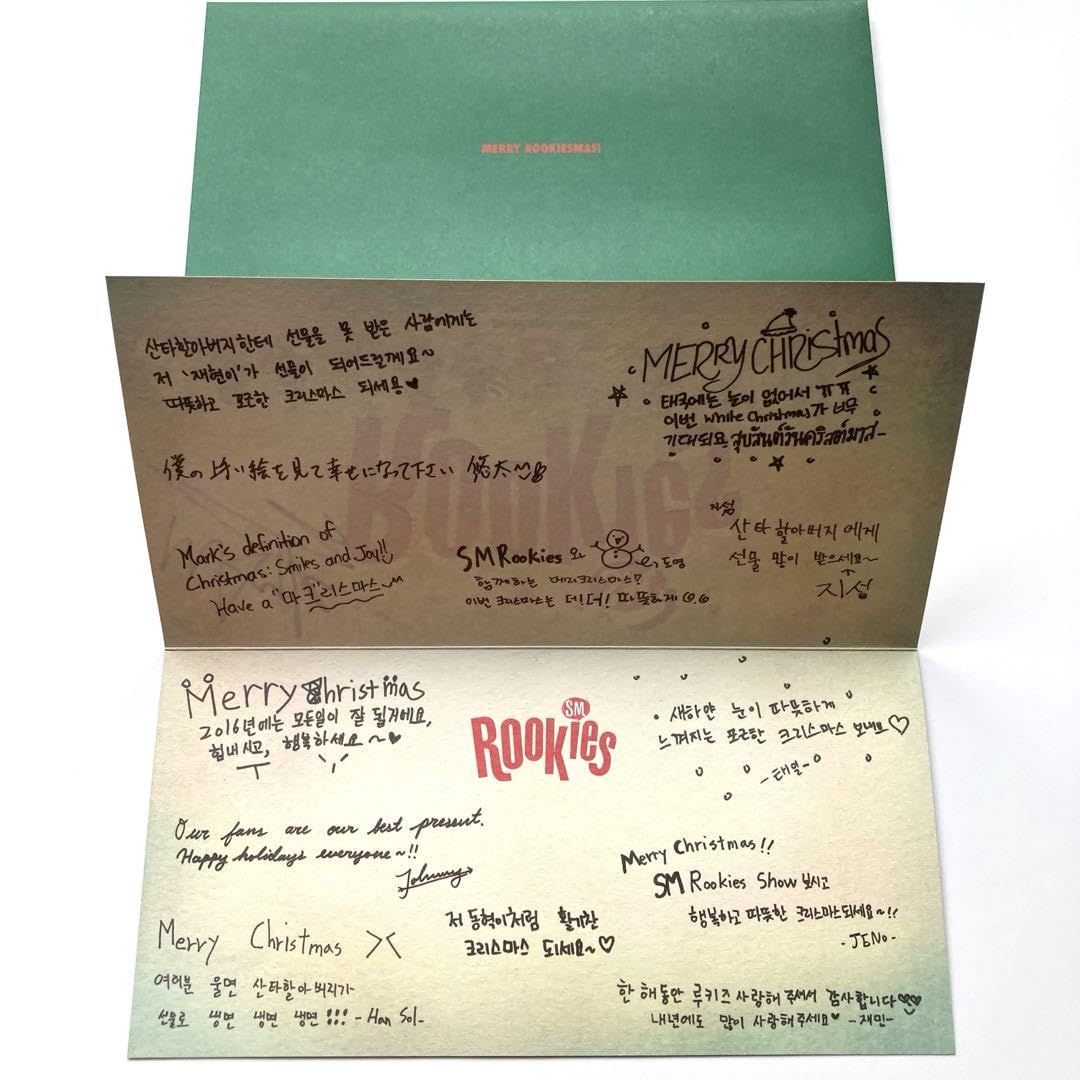 MERRY ROOKIESMAS!
산타할아버지한테 선물을 못 받은 사람에게는
저 '재현이'가 선물이 되어드릴께요~
따뜻하고 포근한 크리스마스 되세용♥
MERRY CHRISTMAS
태국에는 눈이 없어서 ㅠㅠ
이번 White Christmas가 너무
기대되요 สุขสันต์วันคริสต์มาส-
僕の上手い絵を見て幸せになって下さい 悠太
Mark's definition of
Christmas: Smiles and Joy!!
Have a "마크"리스마스~
SMRookies 와 도영
함께하는 메리크리스마스?
이번 크리스마스는 더! 더! 따뜻하게
지성
산타 할아버지에게
선물 많이 받으세요~
지성
ROOKIES
Merry Christmas
2016년에는 모든일이 잘 될거에요,
힘내시고, 행복하세요~♥
SM
ROOKIES
새하얀 눈이 따뜻하게
느껴지는 포근한 크리스마스 보내요♡
-태일-
Our fans are our best present.
Happy holidays everyone~!!
Johnny
Merry Christmas!!
SM Rookies Show 보시고
행복하고 따뜻한 크리스마스되세요~!!
-JENO-
Merry Christmas ><
여허분 울면 산타할아버리가
선물로 냉면 냉면 냉면!!! -Han Sol-
저 동혁이처럼 활기찬
크리스마스 되세요~♡
한 해동안 루키즈 사랑해 주셔서 감사합니다♡♡
내년에도 많이 사랑해주세요♥ -재민-